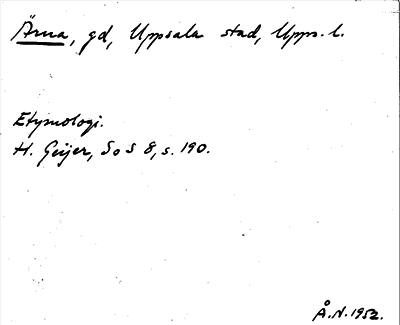 Ärna, gd, Uppsala stad, Upps. l.
Etymologi.
H. Geijer, SoS 8, s. 190.
Å.N. 1952.